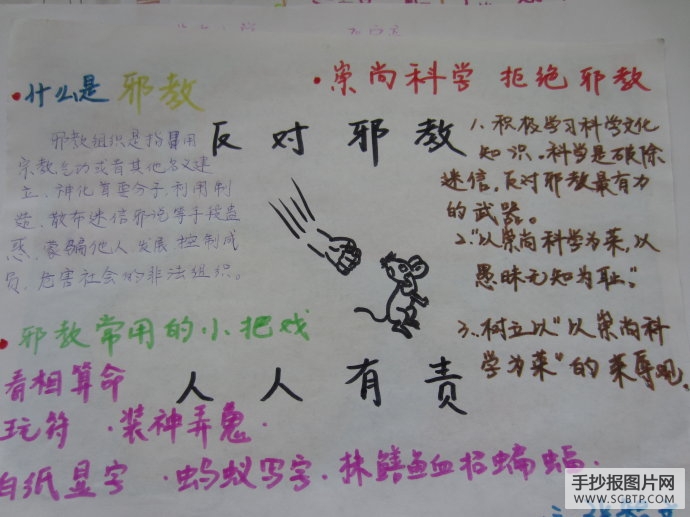 ·什么是邪教
邪教组织是指冒用
宗教气功或者其他名义建
立、神化首要分子,利用制
造、散布迷信邪说等手段蛊
惑、蒙骗他人,发展、控制成
员、危害社会的非法组织。
反对邪教
人人有责
·崇尚科学 拒绝邪教
1、积极学习科学文化
知识。科学是破除
迷信,反对邪教最有力
的武器。
2."以崇尚科学为荣,以
愚昧无知为耻。"
3、树立以"以崇尚科
学为荣"的荣辱观。
·邪教常用的小把戏
看相算命
玩符·装神弄鬼·
白纸显字·蚂蚁写字·抹鳝鱼血招蝙蝠·
手抄报图片网
www.SCBTP.com